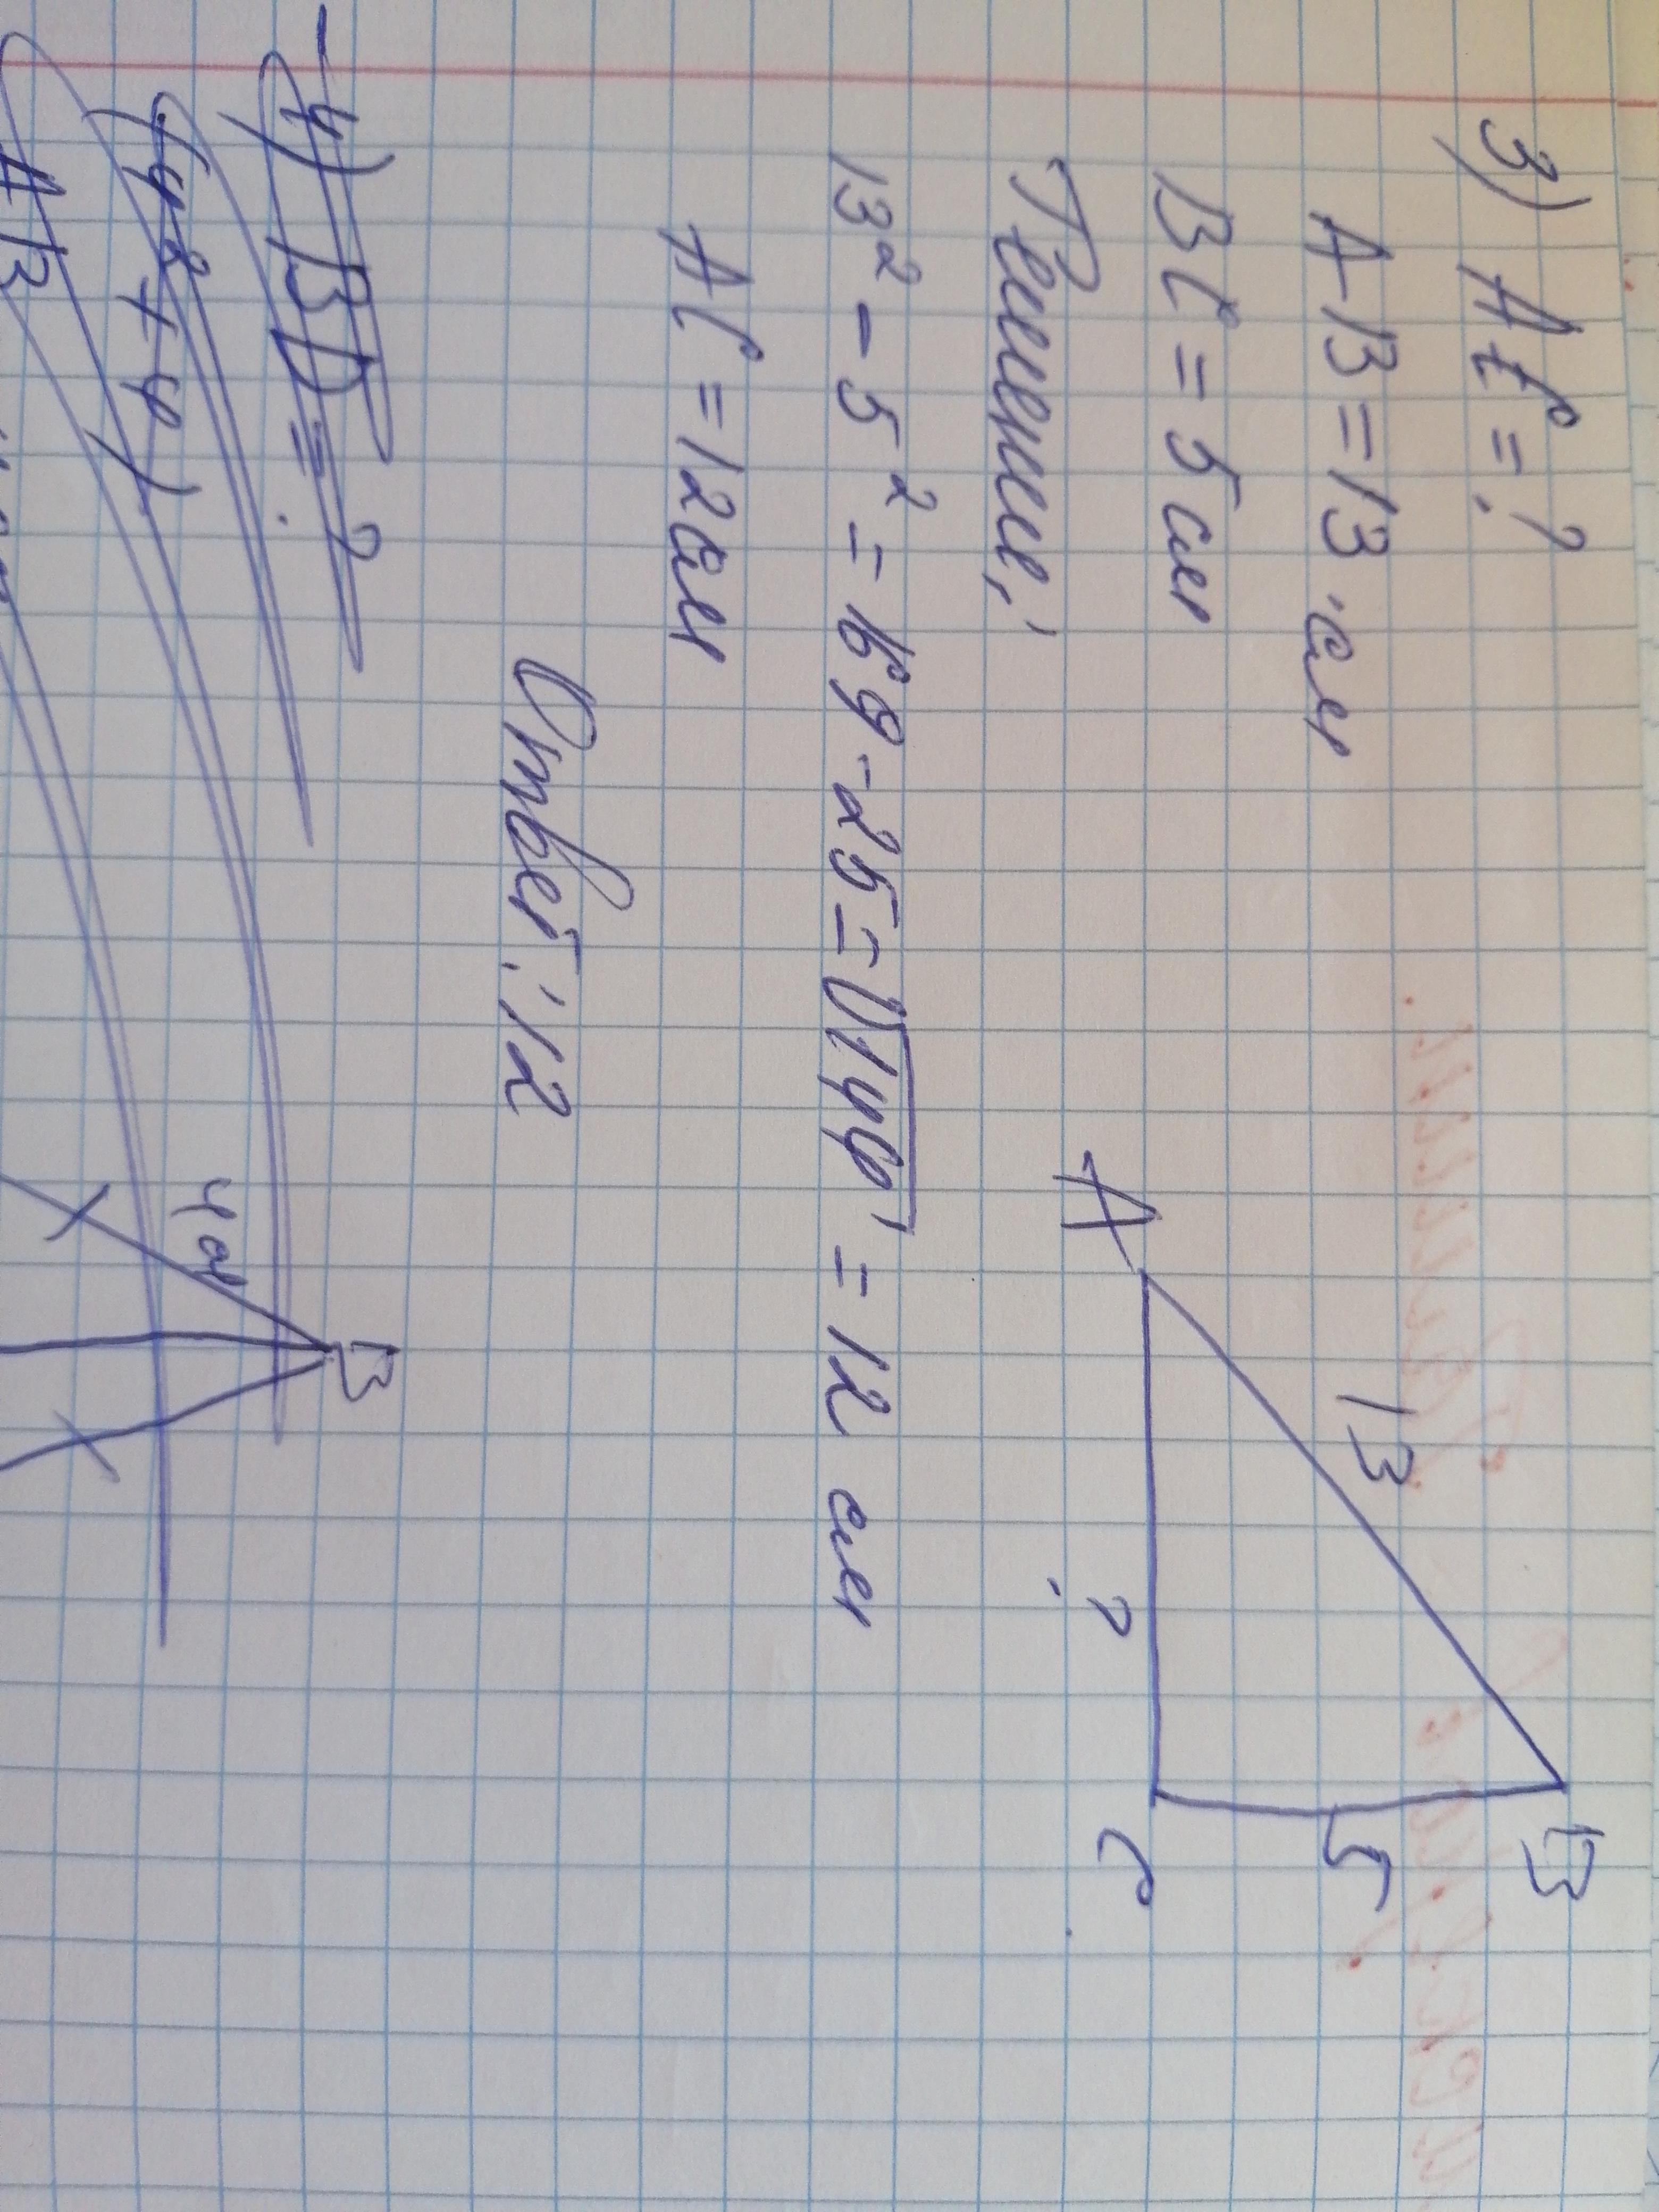 3) AC = ?
AB = 13 см
BC = 5 см
Решение:
13² - 5² = 169 - 25 = √144 = 12 см
AC = 12 см
Ответ: 12
A
13
B
5
C
?
4) BD = ?
(4² + 4)
AB
4 см
B